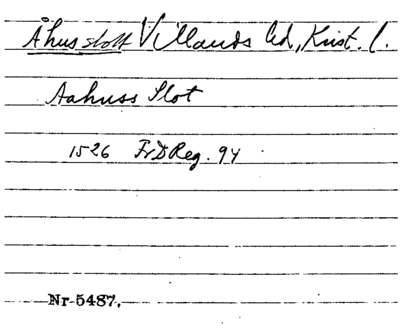 Åhus slott Villands hd, Krist. l.
Aahuss Slot
1526 FrDReg. 94
Nr 5487.